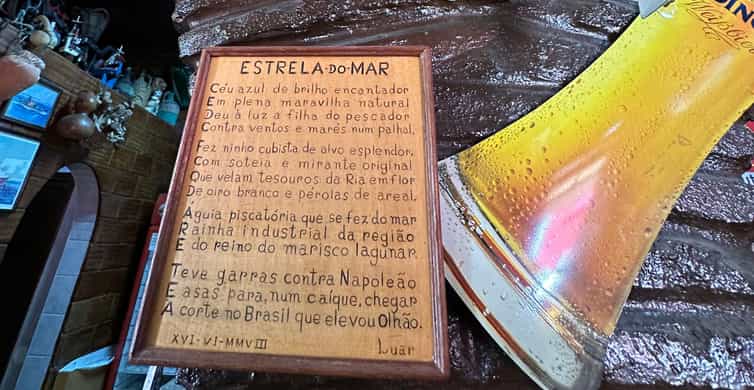 ESTRELA·DO·MAR
Céu azul de brilho encantador
Em plena maravilha natural
Deu à luz a filha do pescador
Contra ventos e marés num palhal.
Fez ninho cubista de alvo esplendor,
Com soteia e mirante original
Que velam tesouros da Ria em flor
De oiro branco e pérolas de areal.
Águia piscatória que se fez do mar
Rainha industrial da região
E do reino do marisco lagunar.
Teve garras contra Napoleão
E asas para, num caíque, chegar
A corte no Brasil que elevou Olhão.
XVI-VI-MMVIII
Luar